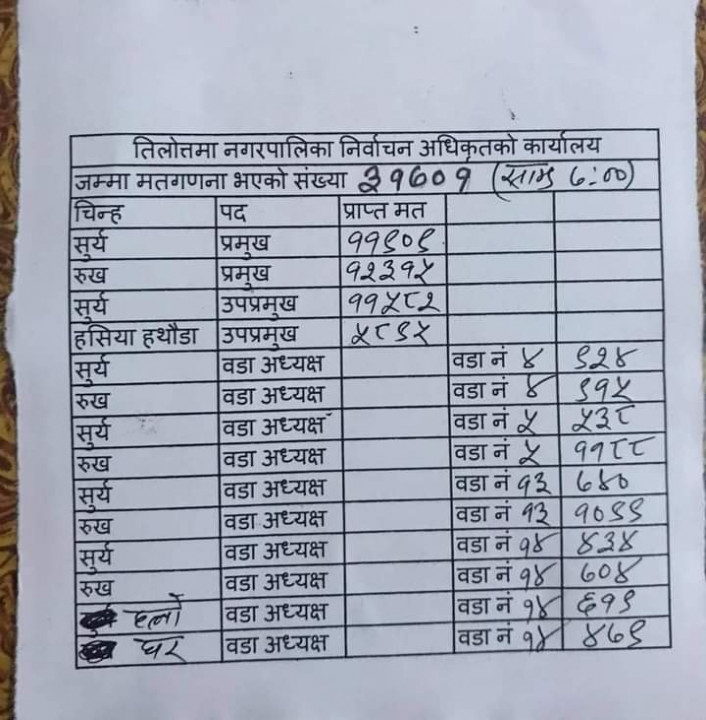 तिलोत्तमा नगरपालिका निर्वाचन अधिकृतको कार्यालय
जम्मा मतगणना भएको संख्या ३१७०१ (साझ ७:००)
चिन्ह पद प्राप्त मत
सुर्य प्रमुख ११९०९
रुख प्रमुख १२३१५
सुर्य उपप्रमुख ११५८२
हसिया हथौडा उपप्रमुख ५८९५
सुर्य वडा अध्यक्ष वडा नं ४ ९२४
रुख वडा अध्यक्ष वडा नं ४ ९१५
सुर्य वडा अध्यक्ष वडा नं ५ ५३८
रुख वडा अध्यक्ष वडा नं ५ ११८८
सुर्य वडा अध्यक्ष वडा नं १३ ७४०
रुख वडा अध्यक्ष वडा नं १३ १०९९
सुर्य वडा अध्यक्ष वडा नं १४ ४३४
रुख वडा अध्यक्ष वडा नं १४ ७०४
हलो वडा अध्यक्ष वडा नं १४ ६१९
घर वडा अध्यक्ष वडा नं १४ ४७९